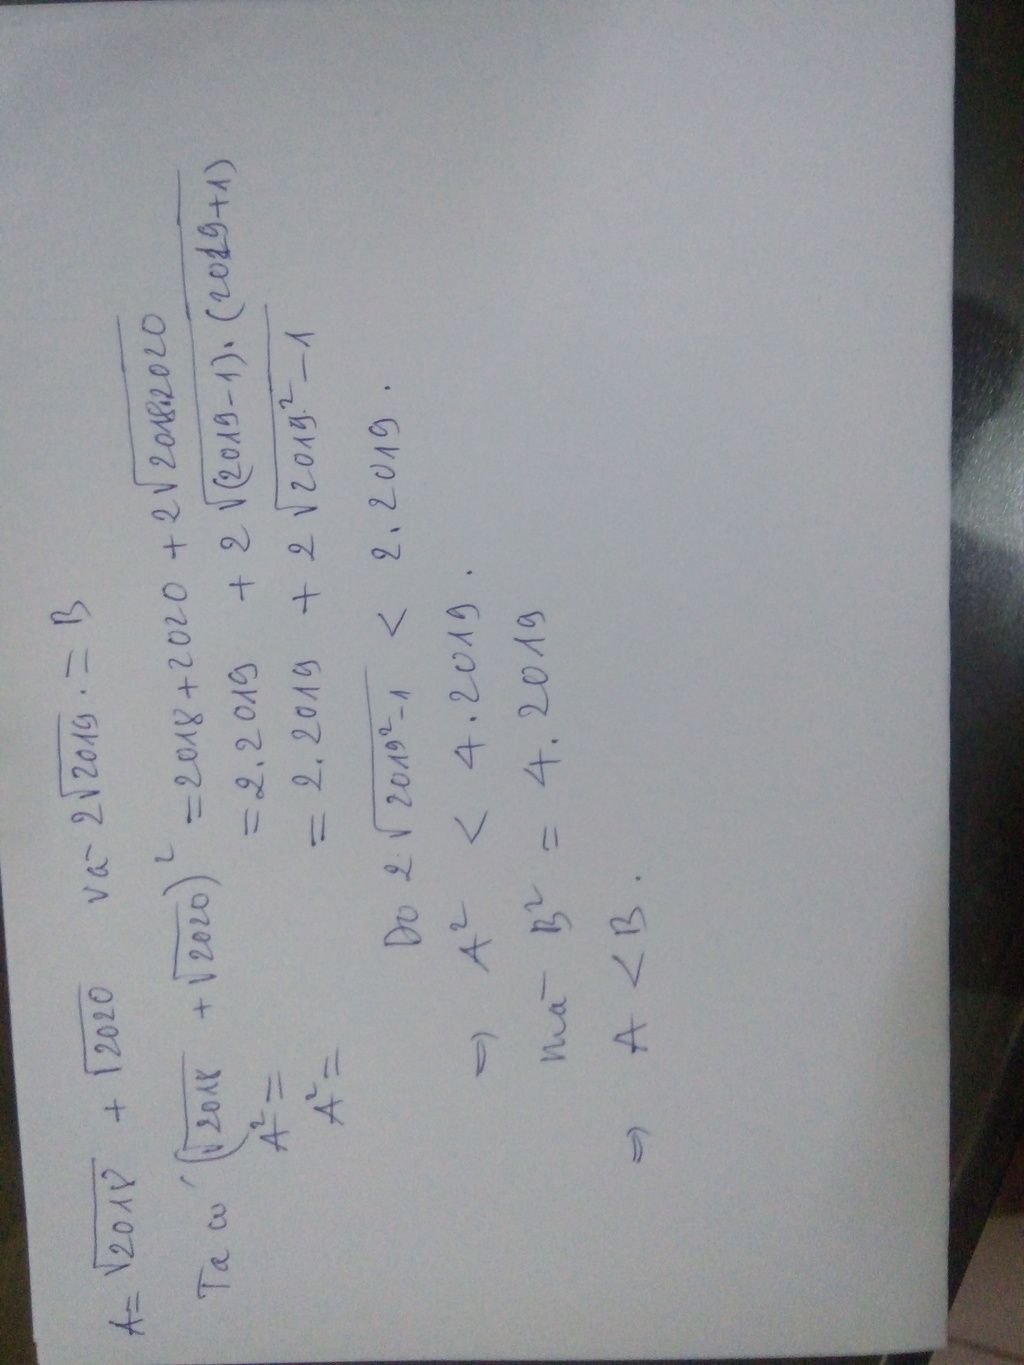 A = √2018 + √2020 và 2√2019. = B
Ta có (√2018 + √2020)² = 2018 + 2020 + 2√2018.2020
A² = = 2.2019 + 2√(2019-1).(2019+1)
A² = = 2.2019 + 2√2019² - 1
Do 2√2019² - 1 < 2.2019.
⇒ A² < 4.2019.
mà B² = 4.2019
⇒ A < B.